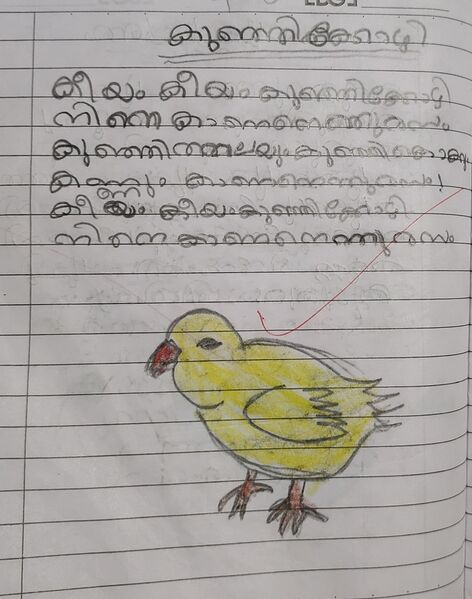 കുഞ്ഞിക്കോഴി
കീയം കീയം കുഞ്ഞിക്കോഴി
നിന്നെ കാണാനെന്തുരസം
കുഞ്ഞിത്തലയും കുഞ്ഞിക്കൊക്കും
കണ്ണും കാണാനെന്തുരസം!
കീയം കീയം കുഞ്ഞിക്കോഴി
നിന്നെ കാണാനെന്തുരസം